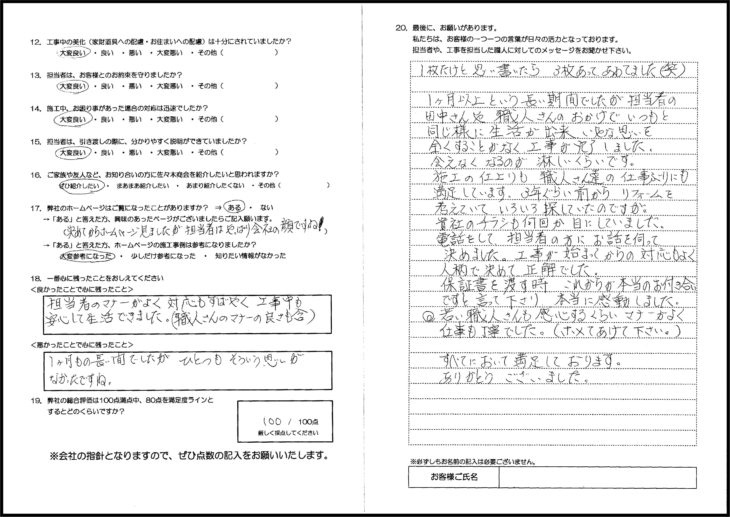 12. 工事中の美化（家財道具への配慮・お住まいへの配慮）は十分にされていましたか？
大変良い ・ 良い ・ 悪い ・ 大変悪い ・ その他（ ）
13. 担当者は、お客様とのお約束を守りましたか？
大変良い ・ 良い ・ 悪い ・ 大変悪い ・ その他（ ）
14. 施工中、お困り事があった場合の対応は迅速でしたか？
大変良い ・ 良い ・ 悪い ・ 大変悪い ・ その他（ ）
15. 担当者は、引き渡しの際に、分かりやすく説明ができていましたか？
大変良い ・ 良い ・ 悪い ・ 大変悪い ・ その他（ ）
16. ご家族や友人など、お知り合いの方に佐々木商会を紹介したいと思われますか？
ぜひ紹介したい ・ まあまあ紹介したい ・ あまり紹介したくない ・ その他（ ）
17. 弊社のホームページはご覧になったことがありますか？ ⇒ ある ・ ない
→「ある」と答えた方、興味のあったページがございましたらご記入願います。
決めてからホームページ見ましたが担当者はやはり会社の顔ですね!
→「ある」と答えた方、ホームページの施工事例は参考になりましたか？
大変参考になった ・ 少しだけ参考になった ・ 知りたい情報がなかった
18. 一番心に残ったことをおしえてください
<良かったことで心に残ったこと>
担当者のマナーがよく 対応もすばやく 工事中も
安心して生活できました。(職人さんのマナーの良さも含)
<悪かったことで心に残ったこと>
1ヶ月もの長い間でしたが ひとつも そういう思いが
なかったですね。
19. 弊社の総合評価は100点満点中、80点を満足度ラインと
するとどのくらいですか？
100 / 100点
厳しく採点してください
※会社の指針となりますので、ぜひ点数の記入をお願いいたします。
20. 最後に、お願いがあります。
私たちは、お客様の一つ一つの言葉が日々の活力となっております。
担当者や、工事を担当した職人に対してのメッセージをお聞かせ下さい。
1枚だけと思い書いたら 3枚あってあわてました(笑)
1ヶ月以上という長い期間でしたが担当者の
田中さんや 職人さんのおかげで いつもと
同じ様に生活が出来 いやな思いを
全くすることがなく 工事が完了しました。
会えなくなるのが 淋しいくらいです。
施工の仕上りも 職人さん達の仕事ぶりにも
満足しています。3年ぐらい前から リフォームを
考えていて いろいろ探していたのですが。
貴社のチラシも何回か目にしていました。
電話をして 担当者の方に お話を伺って
決めました。工事が始まってからの対応もよく
人柄で決めて正解でした。
保証書を渡す時 これからが本当のお付き合い
ですと言って下さり 本当に感動しました。
◎若い職人さんも感心するくらい マナーがよく
仕事も丁寧でした。(ホメてあげて下さい。)
すべてにおいて満足しております。
ありがとう ございました。
※必ずしもお名前の記入は必要ございません。
お客様ご氏名